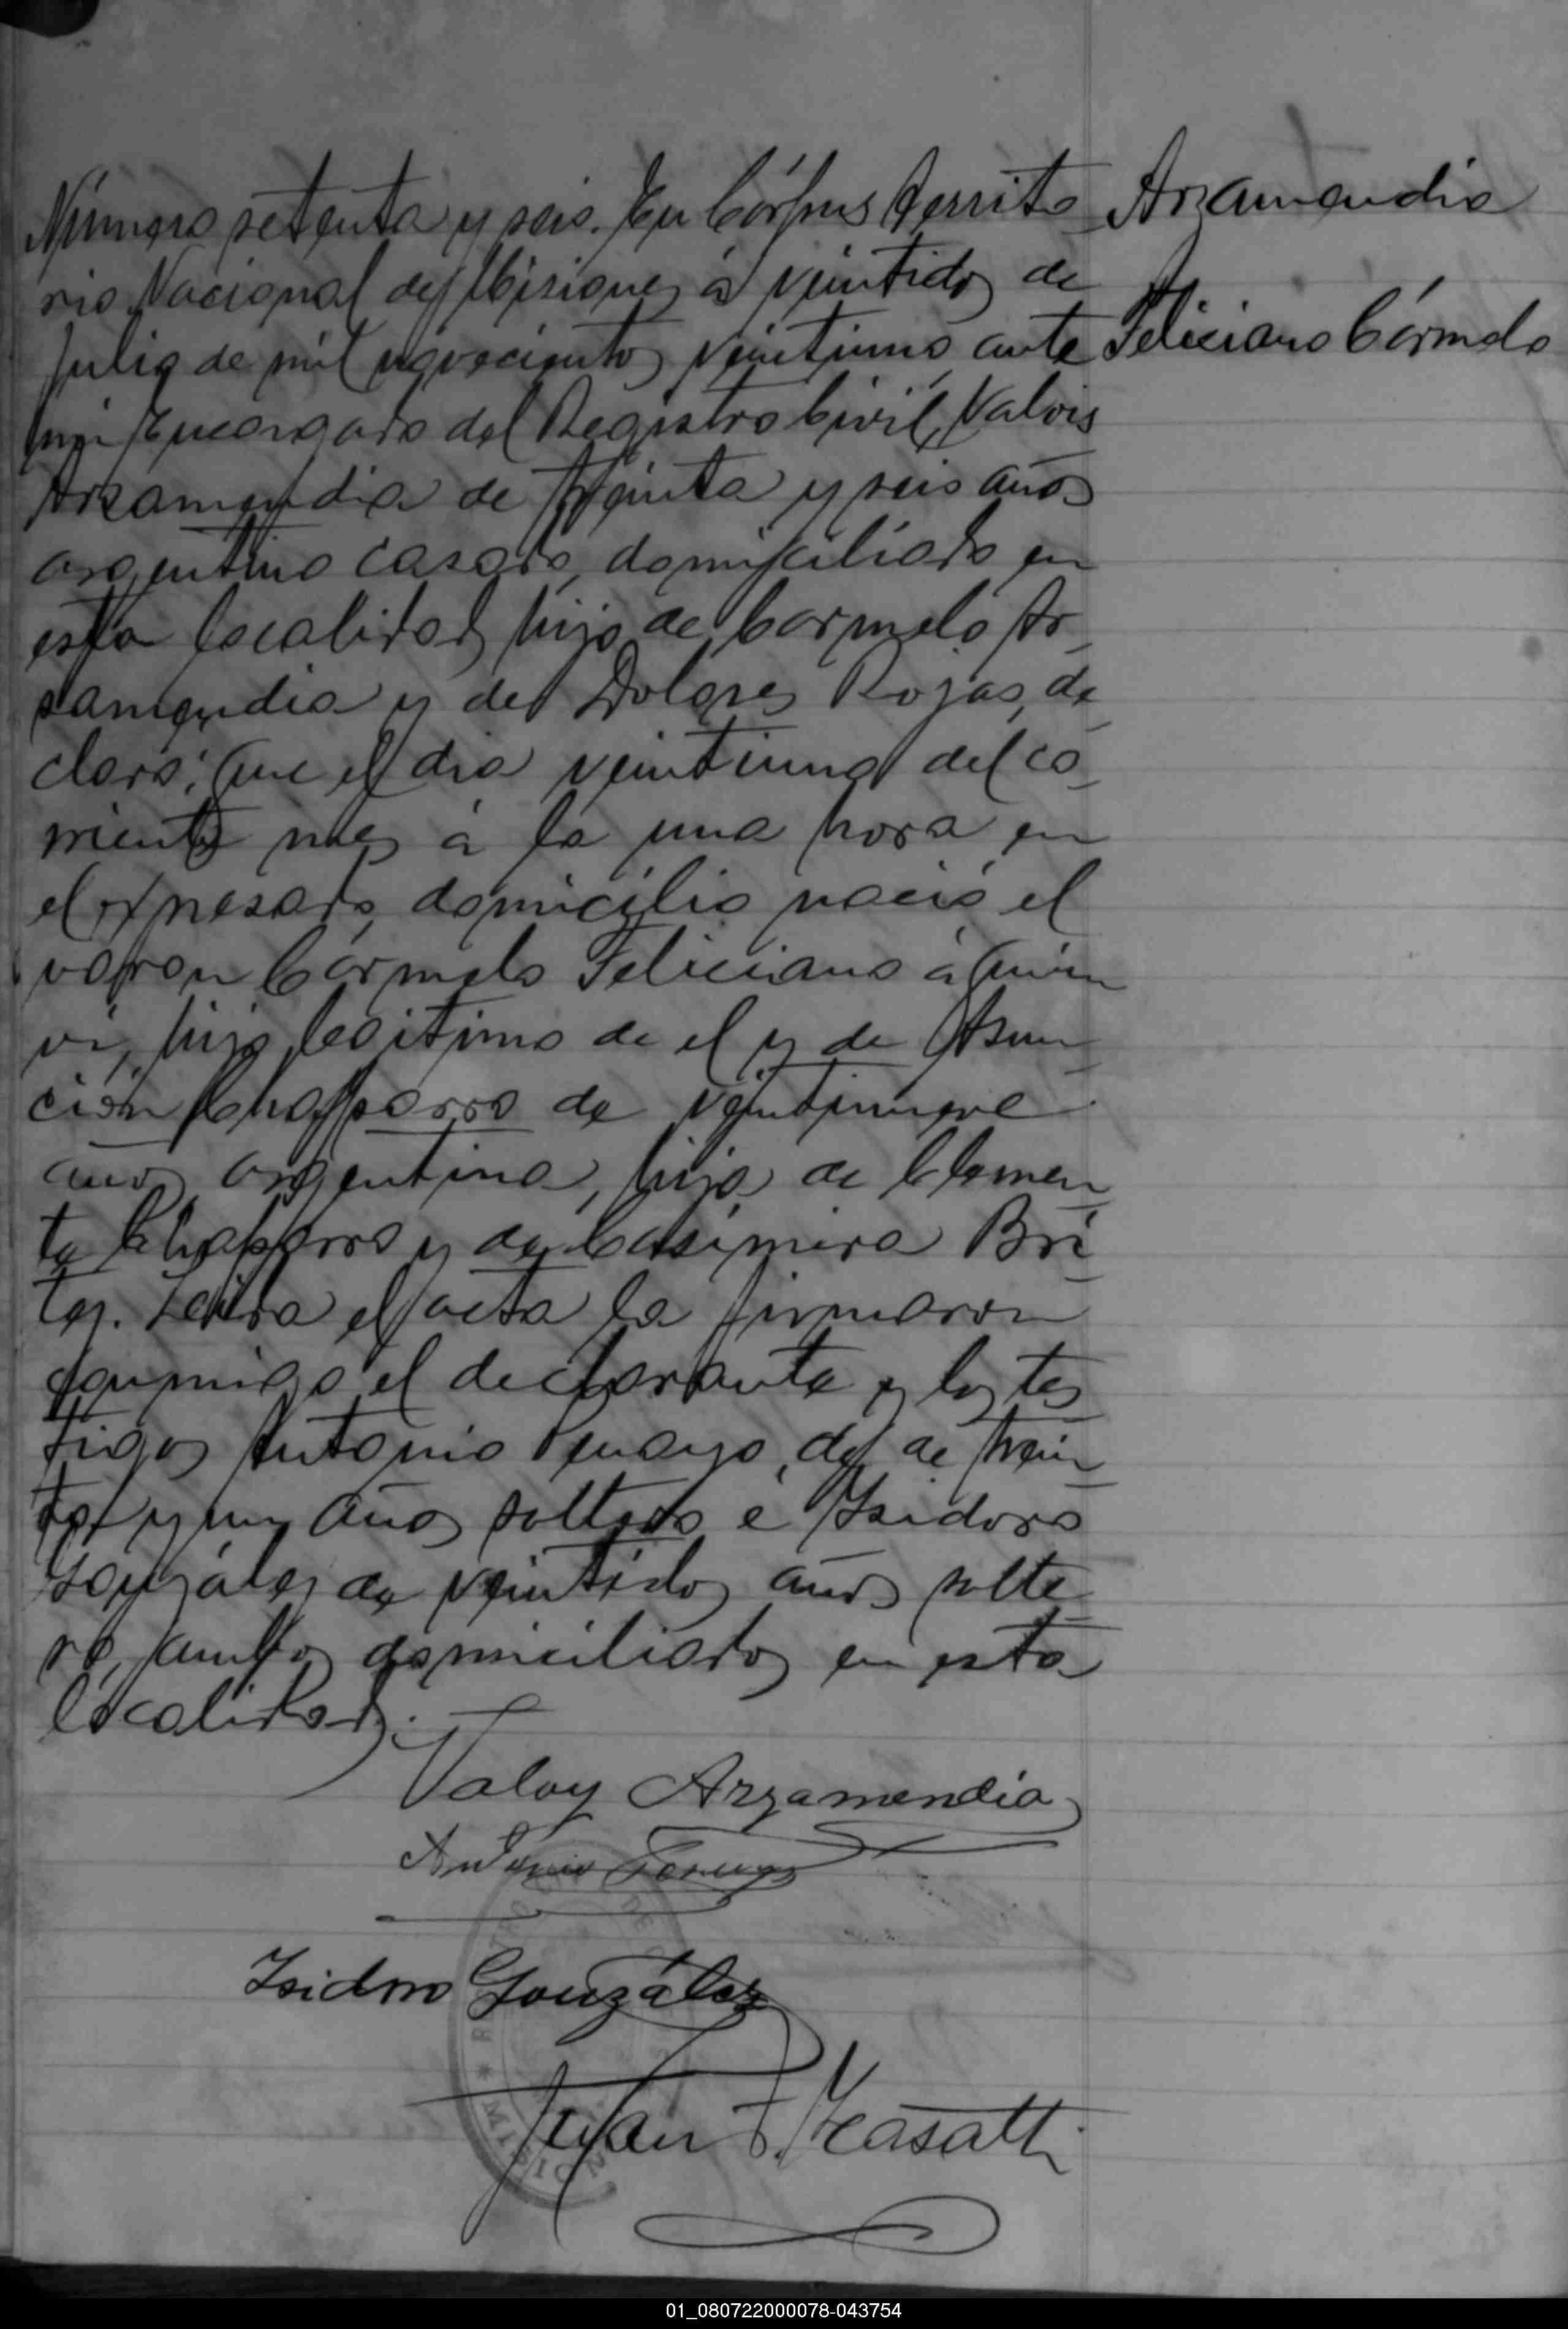 Número setenta y seis. En Córpus Territo
Arzamendia
rio Nacional de Misiones á veintidos de
Julio de mil novecientos veintiuno, ante
Feliciano Cármelo
mi Encargado del Registro Civil, Valois
Arzamendia de treinta y seis años
argentino casado, domiciliado en
esta localidad, hijo de Carmelo Ar
samendia y de Dolores Rojas, de
claró: Que el dia veintiuno del co
rriente mes á la una hora en
el expresado domicilio nació el
varon Cármelo Feliciano á quien
vi, hijo legitimo de el y de Asun
ción Chapparro de veintinueve
años argentina, hija de Clemen
te Chapparro y de Casimira Bri
tez. Leida el acta la firmaron
conmigo el declarante y los tes
tigos Antonio de de trein
ta y un años soltero é Isidoro
González de veintidos años solte
ro, ambos domiciliados en esta
localidad.
Valoy Arzamendia
Antonio
Isidro González
Juan F. Casatti
MISION
01_080722000078-043754